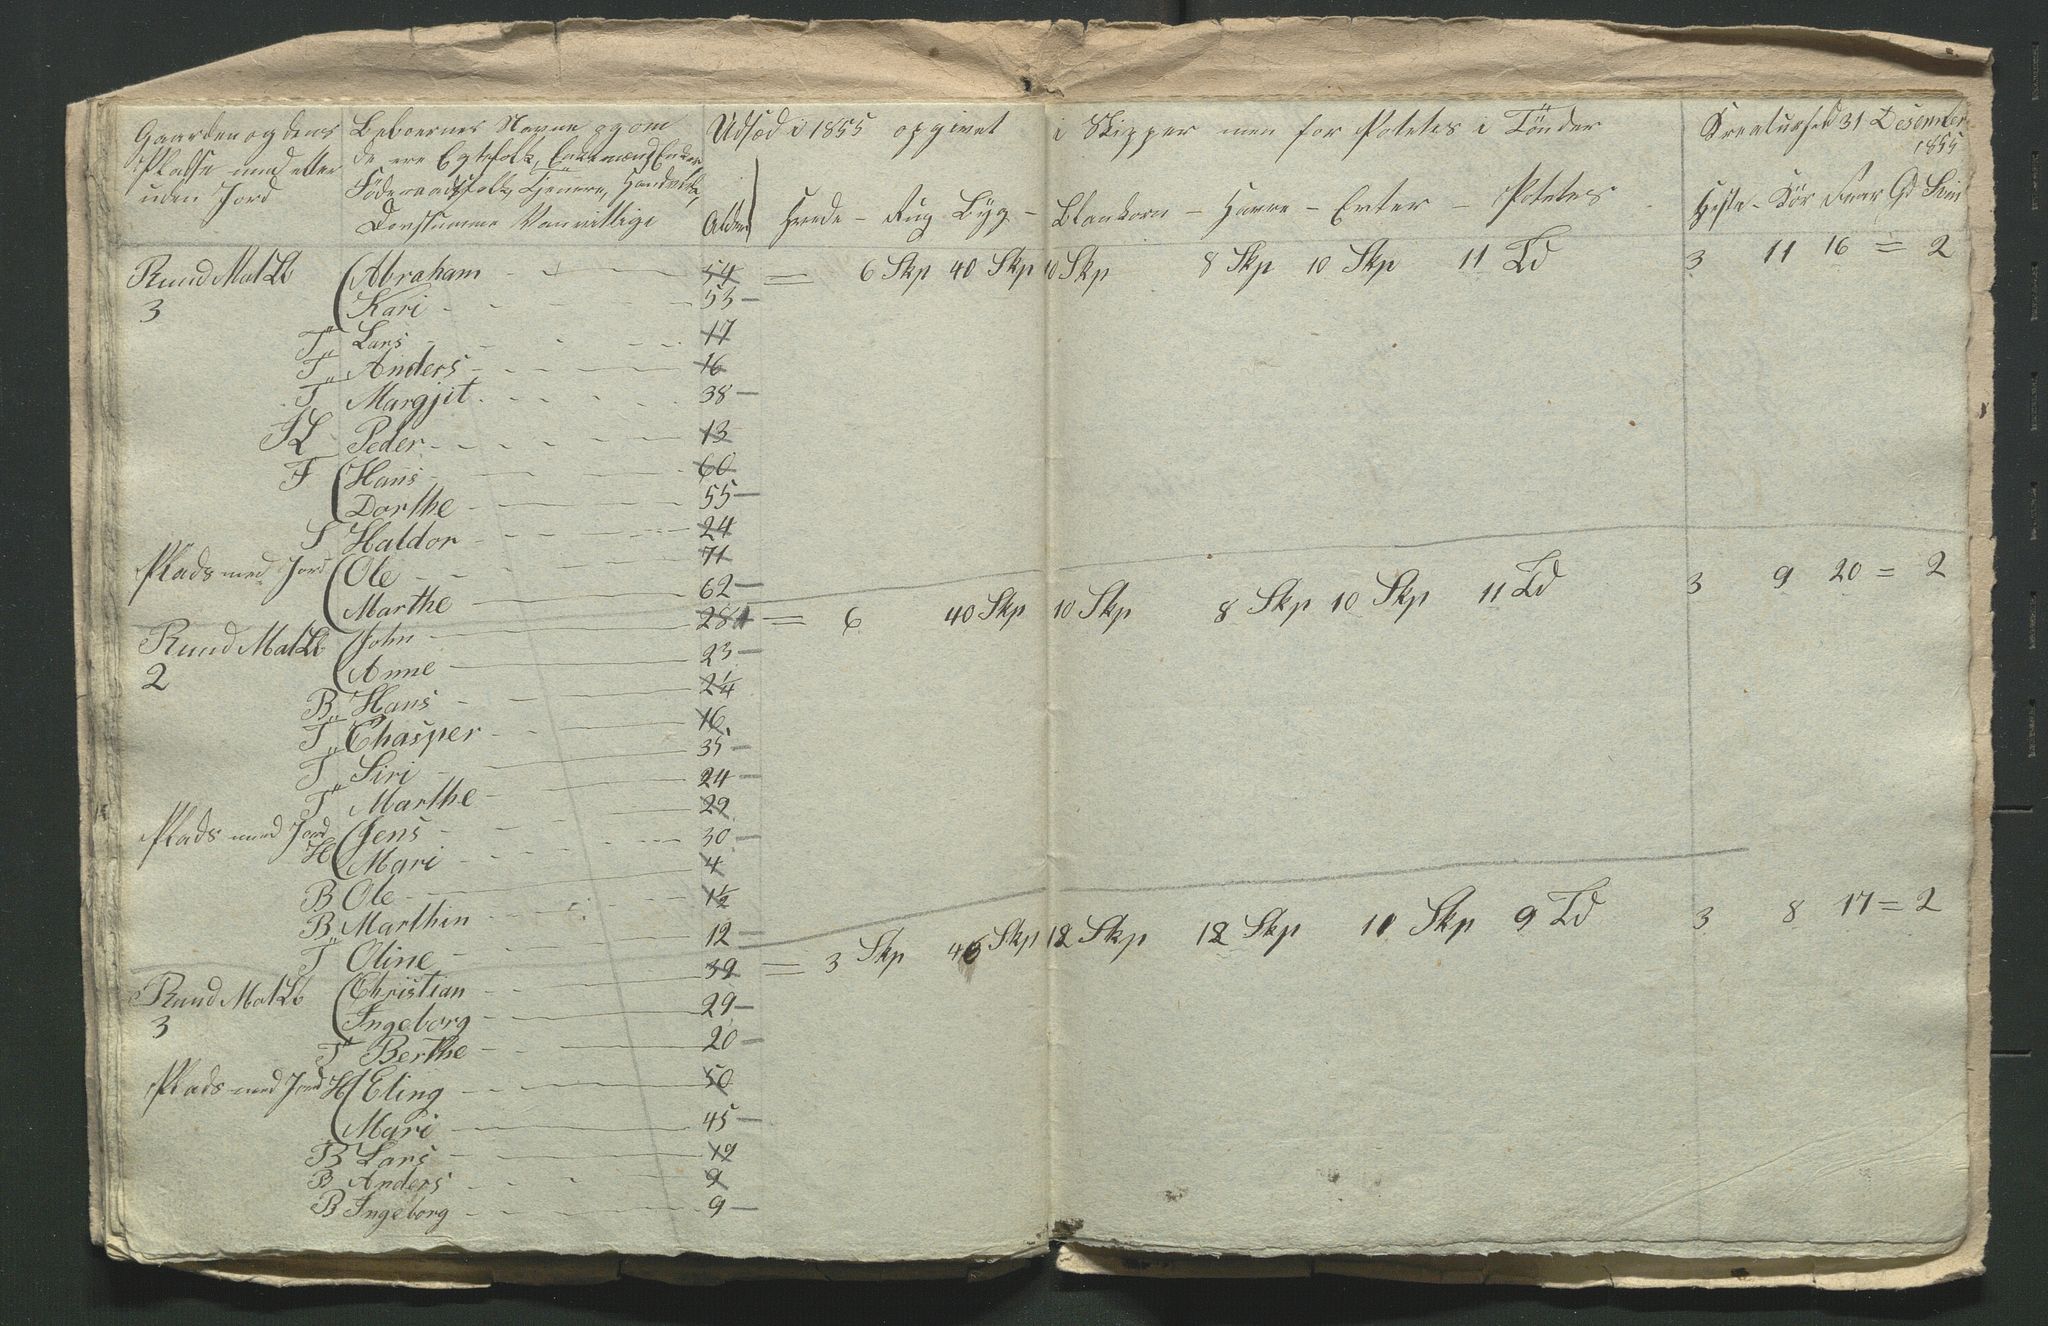 Gaarden og dens Pladse med eller uden Jord
Beboernes Navne og om de ere Egtefolk, Enkemænd Enker Föderaadsfolk, Tjenere, Handverk, Dövstumme Vanvittige
Alder
Udsæd i 1855 opgivet i Skipper men for Potetes i Tönder
Hvede - Rug Byg - Blankorn - Havre - Erter - Potetes
Kreaturhold 31 Desember 1855
Heste - Kör Faar Gd Svin
Ruud Mat Lb 3 Abraham 54 = 6 Skp 40 Skp 10 Skp 8 Skp 10 Skp 11 Td 3 11 16 = 2
Kari 53
T Lars 17
T Anders 16
T Margjit 38
FL Peder 13
F Hans 60
Dorthe 55
S Haldor 24
Plads med Jord Ole 71
Marthe 62
Ruud Mat Lb 2 John 28 = 6 40 Skp 10 Skp 8 Skp 10 Skp 11 Td 3 9 20 = 2
Anne 23
B Hans 2¼
T Chasper 16
T Siri 35
T Marthe 24
Plads med Jord H Jens 29
Mari 30
B Ole 4
B Marthin 1½
T Oline 12
Ruud Mat Lb 3 Christian 39 = 3 Skp 46 Skp 12 Skp 12 Skp 10 Skp 9 Td 3 8 17 = 2
Ingeborg 29
T Berthe 20
Plads med Jord H Eling 50
Mari 45
B Lars 19
B Anders 9
B Ingeborg 9